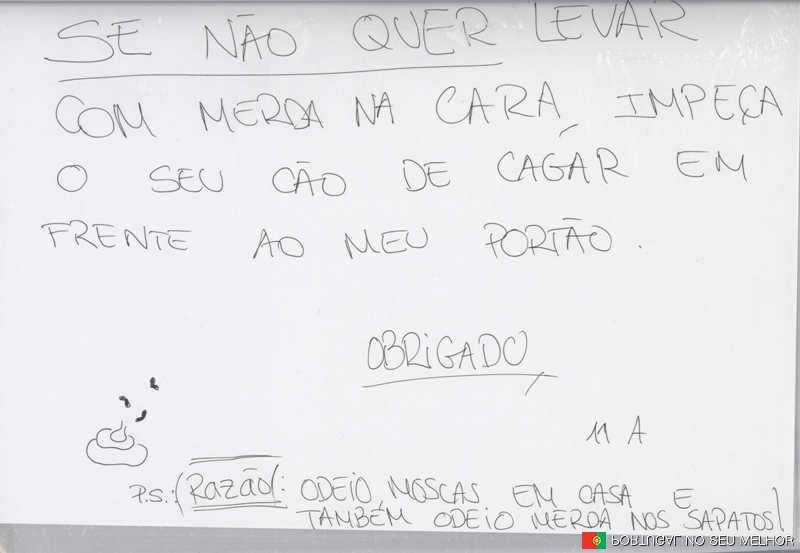 SE NÃO QUER LEVAR
COM MERDA NA CARA, IMPEÇA
O SEU CÃO DE CAGAR EM
FRENTE AO MEU PORTÃO.
OBRIGADO,
11 A
P.S.: (Razão): ODEIO MOSCAS EM CASA E
TAMBÉM ODEIO MERDA NOS SAPATOS!
PORTUGAL NO SEU MELHOR